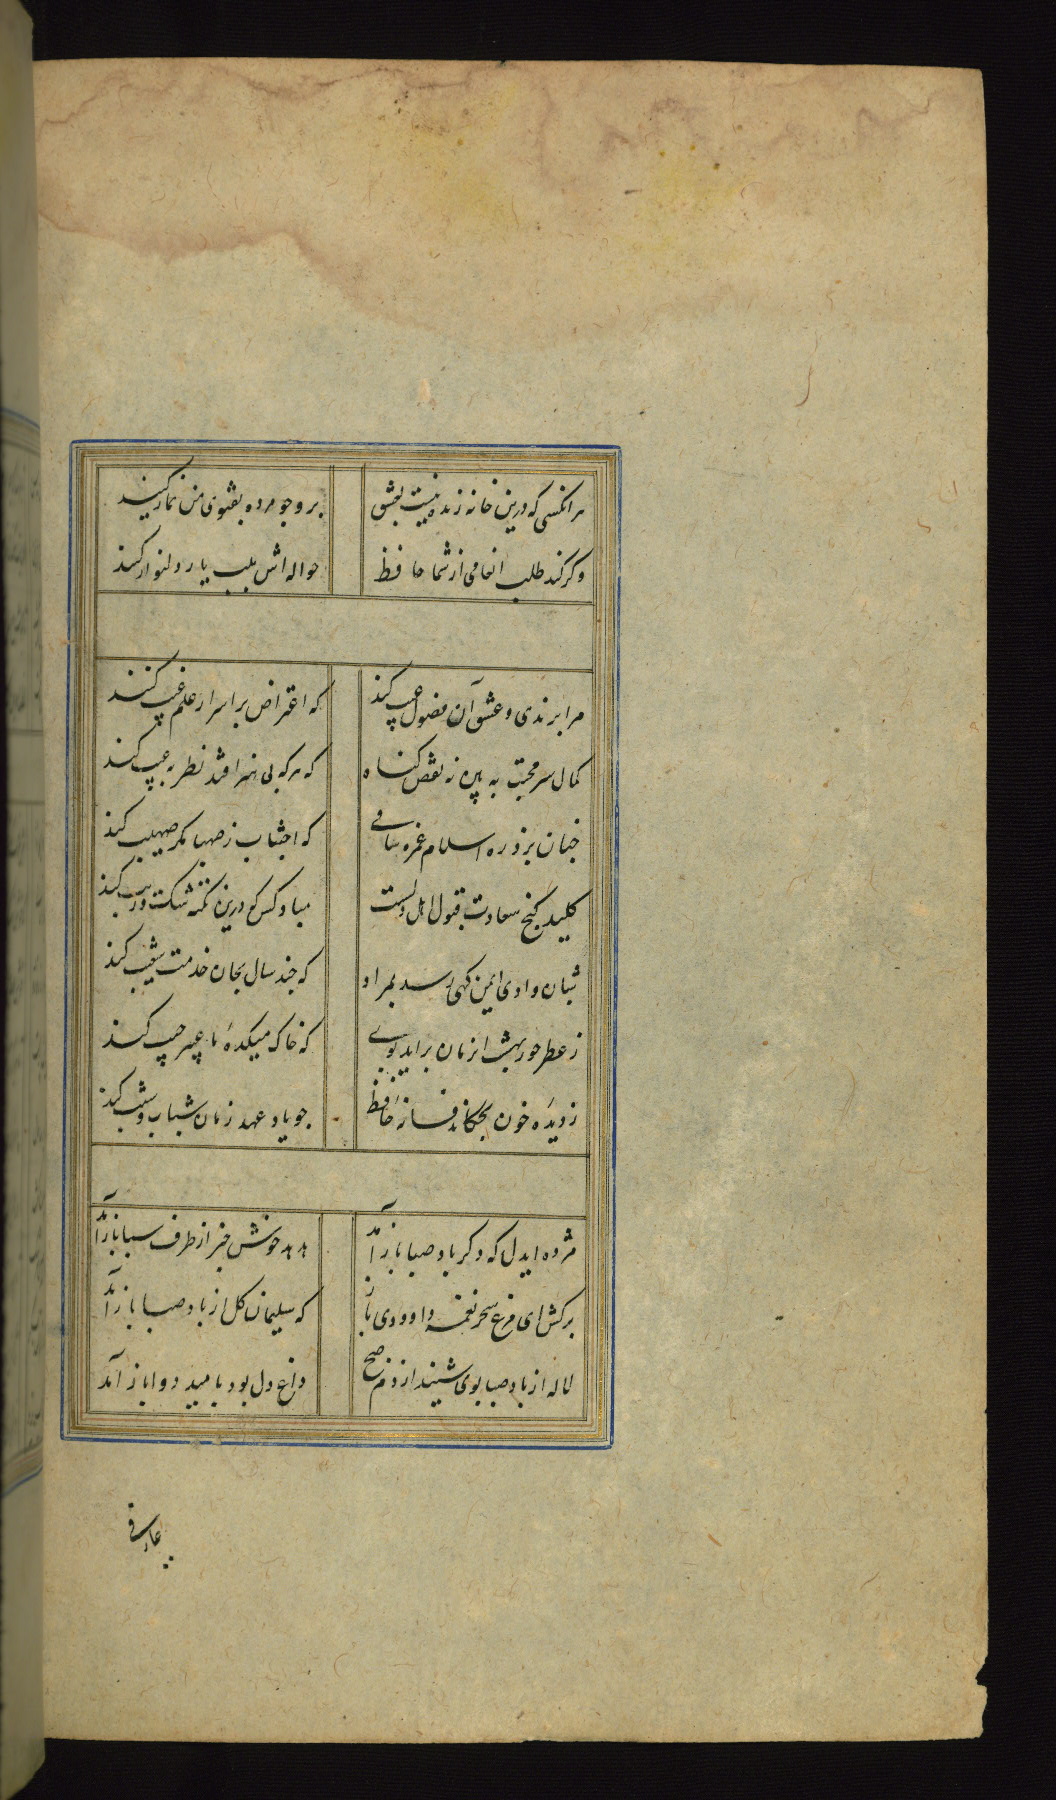 هر انکسی که درین خانه زنده نیست بعشق بر و چو مرده بفتوی من نماز کنید
وکر کند طلب انعامی از شما حافظ حواله اش بلب یار دلنواز کنید
مرا برندی و عشق آن فضول عیب کند که اعتراض بر اسرار علم غیب کند
کمال سر محبت به بین نه نقص کناه که هر که بی هنر افتد نظر به عیب کند
چنان بزد ره اسلام غمزه ساقی که اجتناب ز صهبا مکر صهیب کند
کلید کنج سعادت قبول اهل دلست مباد کس که درین نکته شک و ریب کند
شبان وادی ایمن کهی رسد بمراد که چند سال بجان خدمت شعیب کند
ز عطر حور بهشت انزمان براید بوی که خاک میکده ما عبیر جیب کند
ز دیده خون بچکاند فسانه حافظ چو یاد عهد زمان شباب و شیب کند
مژده ایدل که دکر باد صبا باز آمد هدهد خوش خبر از طرف سبا باز آمد
برکش ای مرغ سحر نغمه داوودی باز که سلیمان کل از باد صبا باز آمد
لاله از باد صبا بوی شنید از دم صبح داغ دل بود بامید دوا باز آمد
عارفی